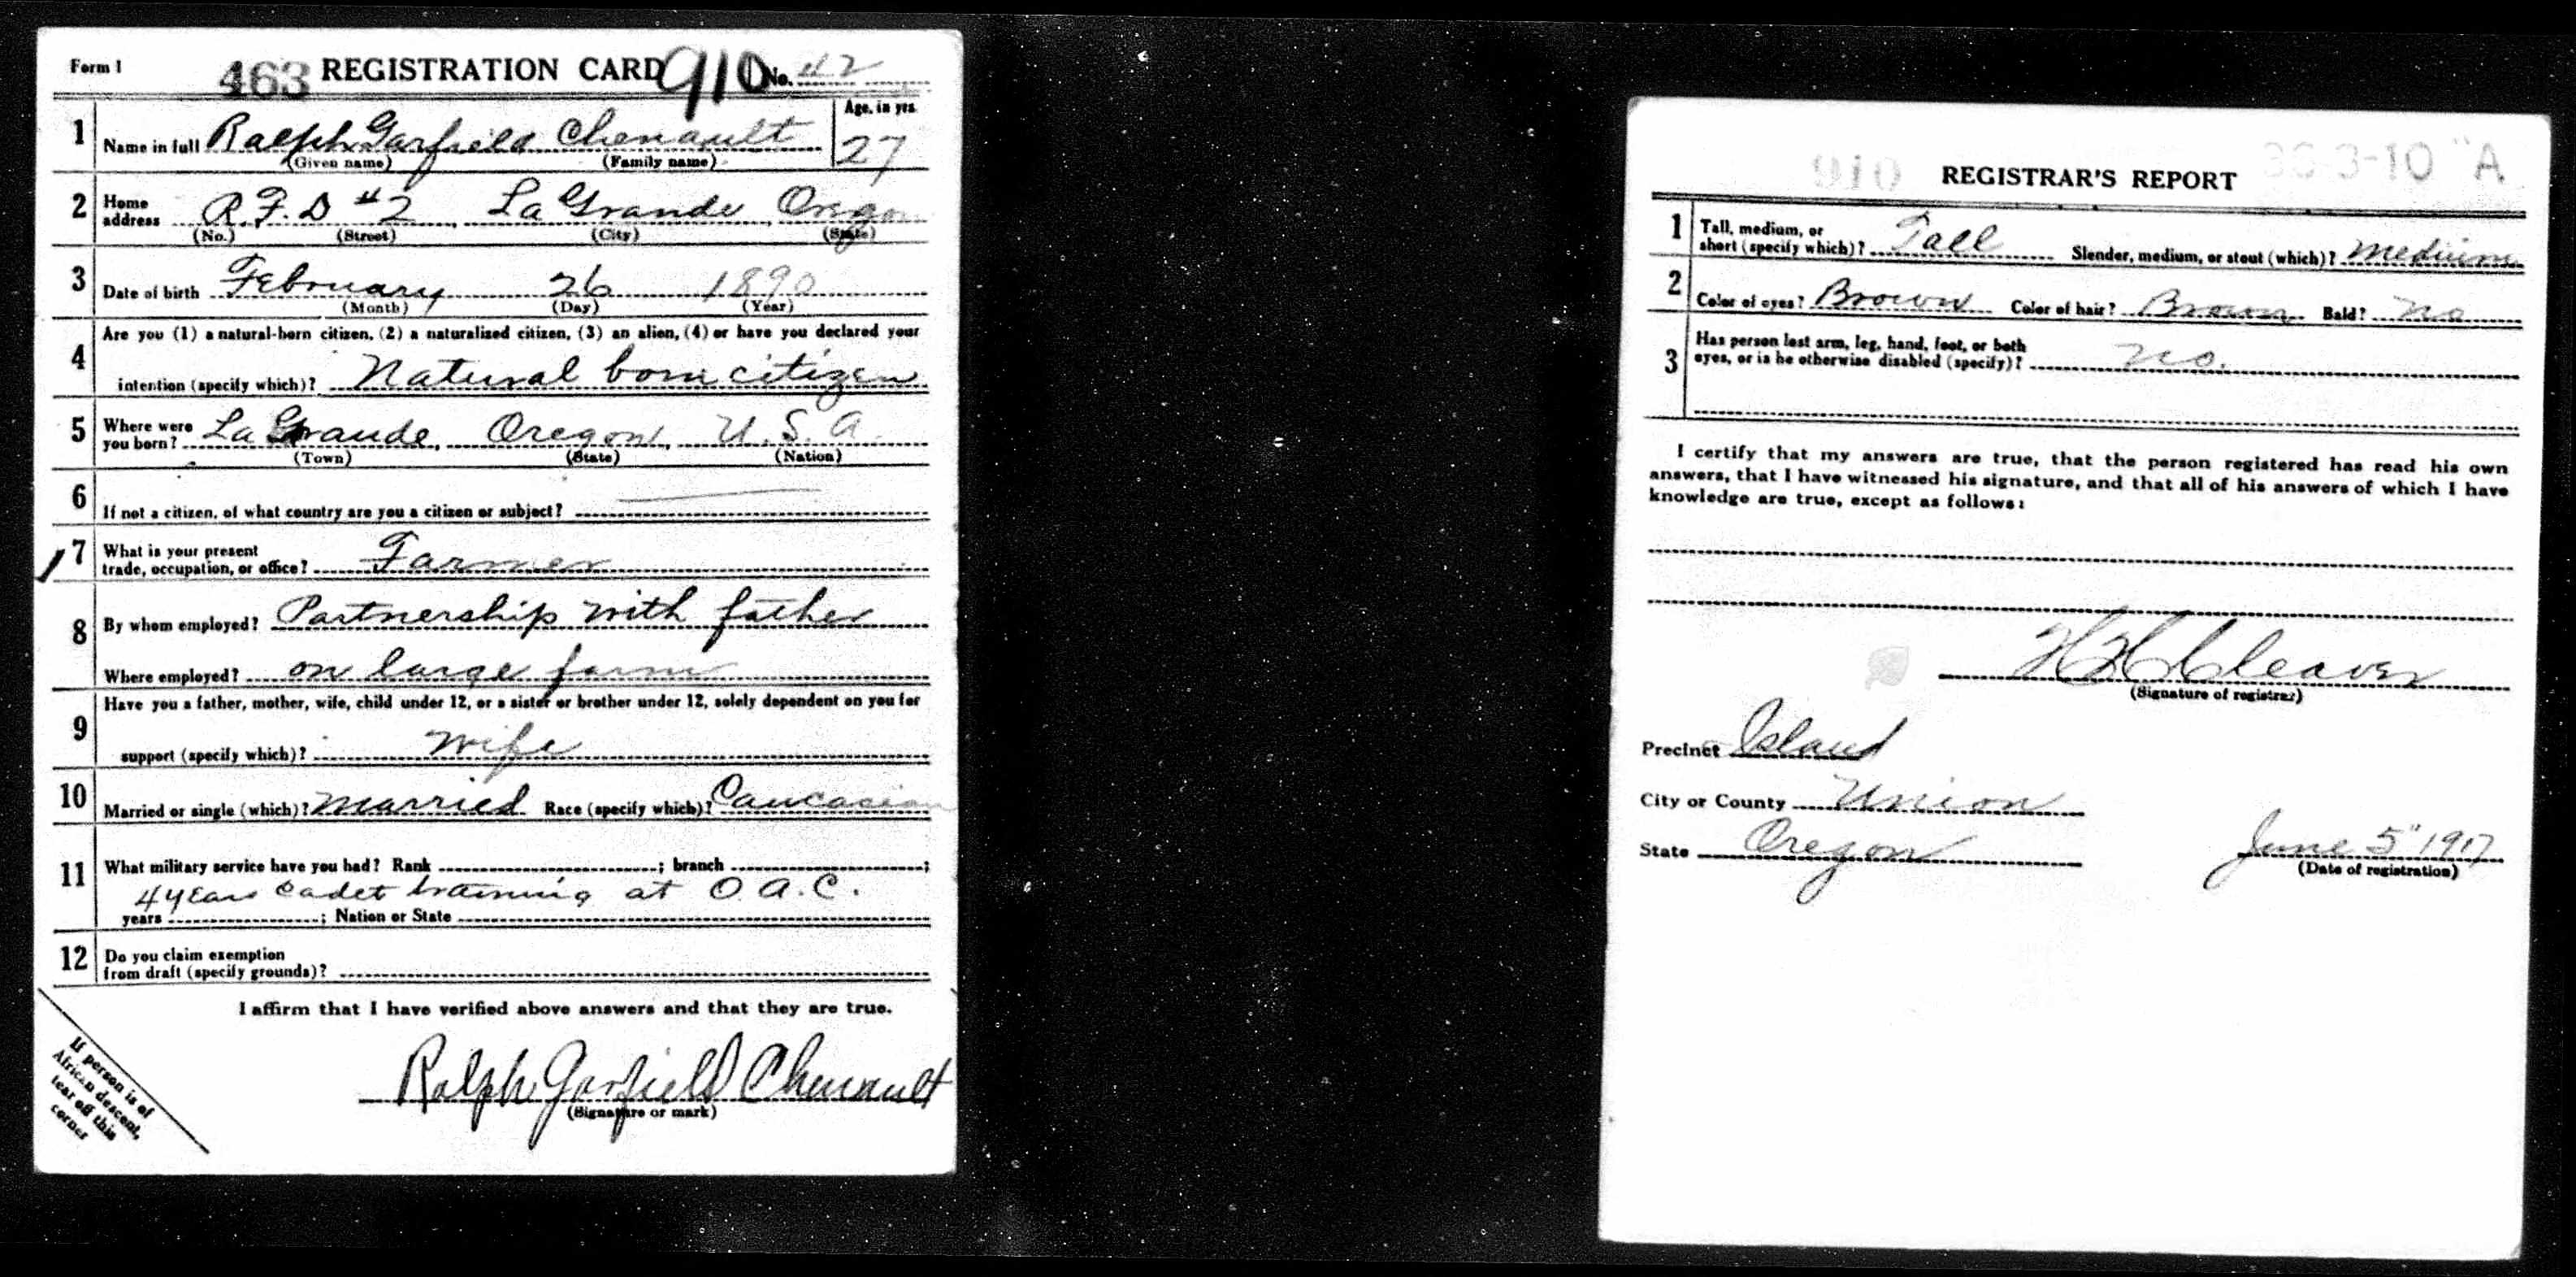 Form 1 463 REGISTRATION CARD 910 No. 42
1 Name in full Ralph Garfield Chenault Age, in yrs. 27
(Given name) (Family name)
2 Home address R.F.D #2, La Grande, Oregon
(No.) (Street) (City) (State)
3 Date of birth February 26 1890
(Month) (Day) (Year)
4 Are you (1) a natural-born citizen, (2) a naturalized citizen, (3) an alien, (4) or have you declared your
intention (specify which)? Natural born citizen
5 Where were you born? La Grande, Oregon, U.S.A.
(Town) (State) (Nation)
6 If not a citizen, of what country are you a citizen or subject?
7 What is your present
trade, occupation, or office? Farmer
8 By whom employed? Partnership with father
Where employed? on large farm
9 Have you a father, mother, wife, child under 12, or a sister or brother under 12, solely dependent on you for
support (specify which)? Wife
10 Married or single (which)? Married Race (specify which)? Caucasian
11 What military service have you had? Rank ; branch ;
4 years Cadet training at O.A.C.
years ; Nation or State
12 Do you claim exemption
from draft (specify grounds)?
I affirm that I have verified above answers and that they are true.
Ralph Garfield Chenault
(Signature or mark)
If person is of
African descent,
tear off this
corner
910 REGISTRAR'S REPORT 36-3-10 "A
1 Tall, medium, or
short (specify which)? Tall Slender, medium, or stout (which)? Medium
2 Color of eyes? Brown Color of hair? Brown Bald? No
3 Has person lost arm, leg, hand, foot, or both
eyes, or is he otherwise disabled (specify)? No.
I certify that my answers are true, that the person registered has read his own
answers, that I have witnessed his signature, and that all of his answers of which I have
knowledge are true, except as follows:
Cleaver
(Signature of registrar)
Precinct Island
City or County Union
State Oregon June 5" 1917
(Date of registration)